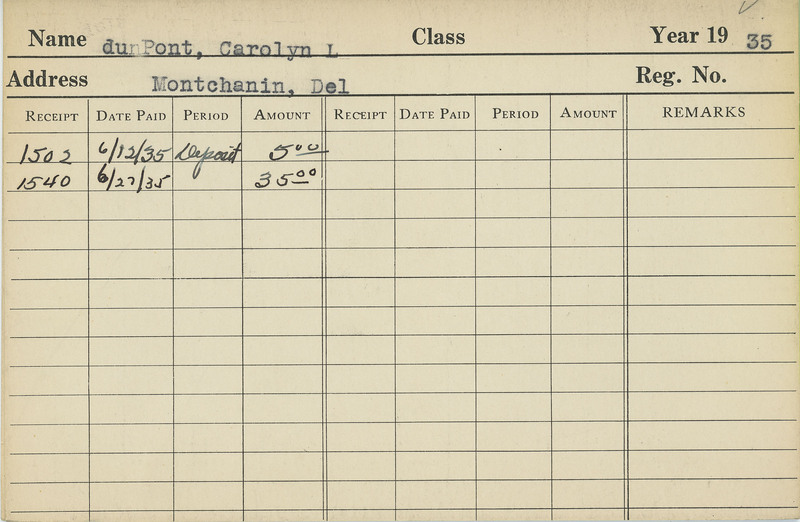 Name dunPont, Carolyn L Class Year 19 35
Address Montchanin, Del Reg. No.
RECEIPT DATE PAID PERIOD AMOUNT RECEIPT DATE PAID PERIOD AMOUNT REMARKS
1502 6/12/35 Deposit 5.00
1540 6/27/35 35.00